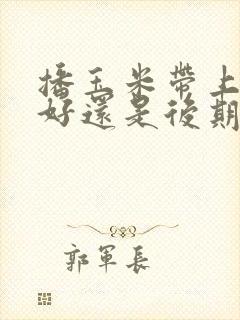 播玉米帶上
好還是後期
郭軍長